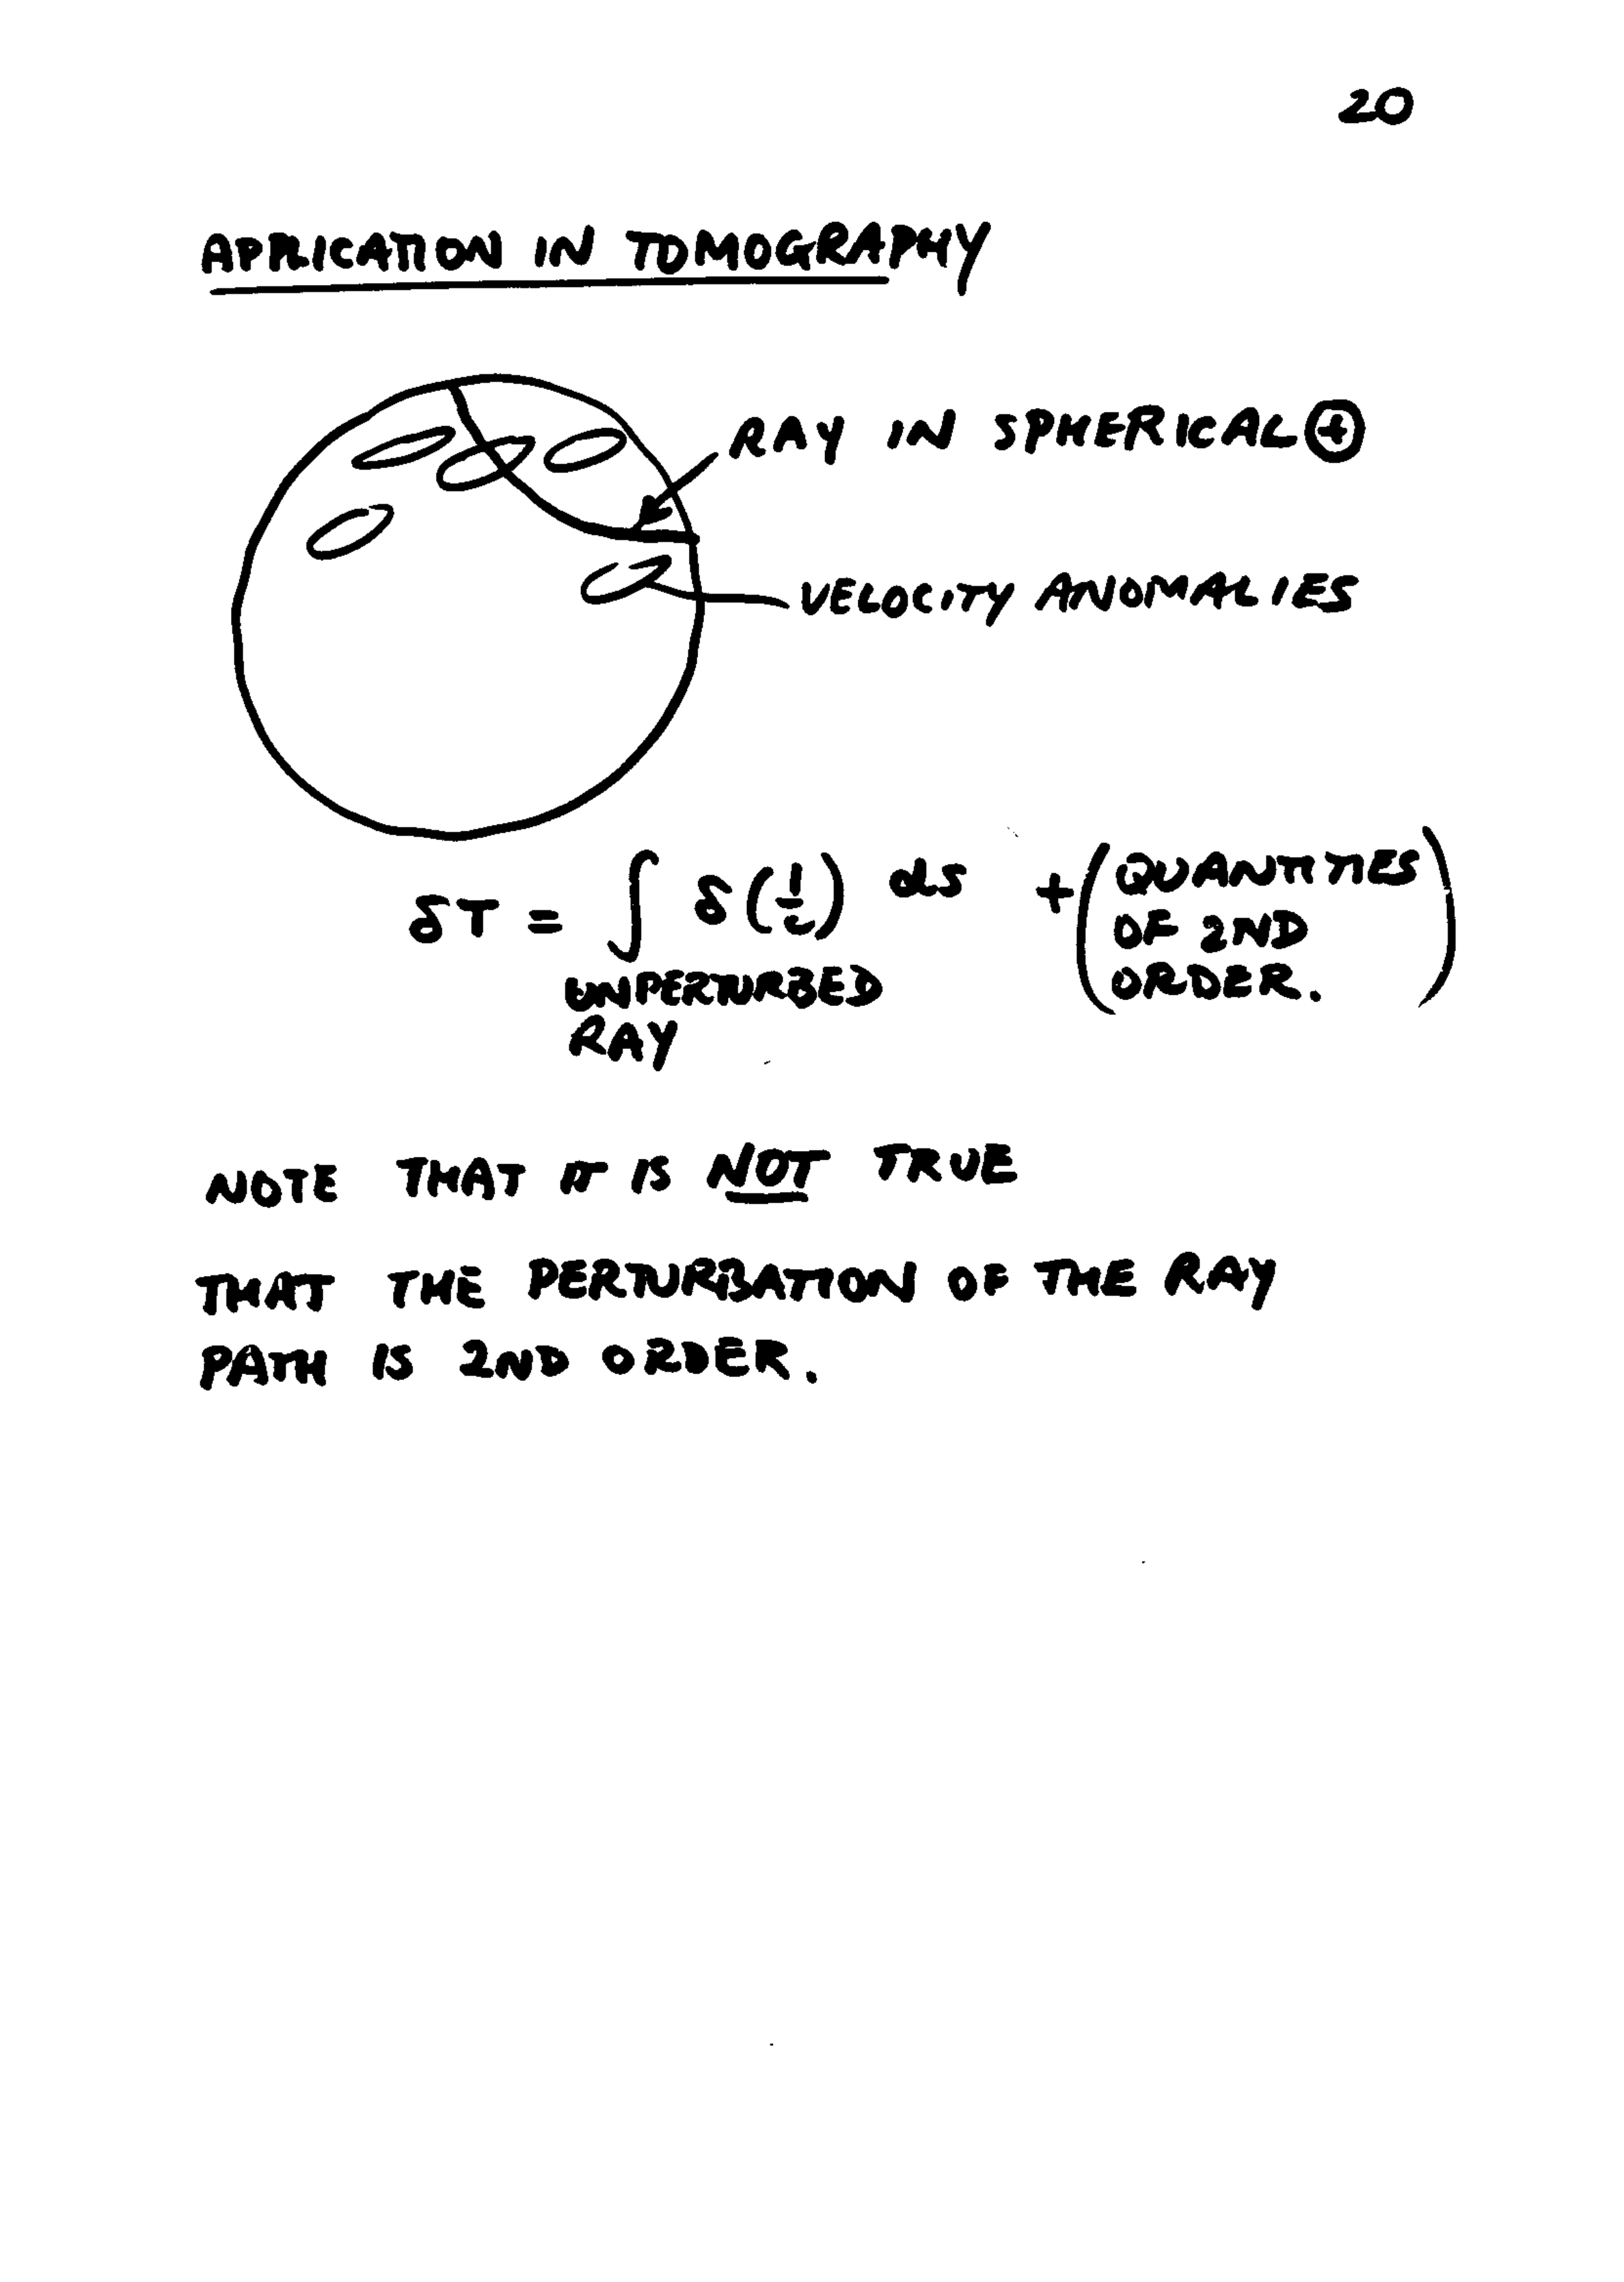 20
APPLICATION IN TOMOGRAPHY
RAY IN SPHERICAL ⊕
VELOCITY ANOMALIES
δT = ∫ δ(1/c) ds + (QUANTITIES
OF 2ND
ORDER.)
UNPERTURBED
RAY
NOTE THAT IT IS NOT TRUE
THAT THE PERTURBATION OF THE RAY
PATH IS 2ND ORDER.